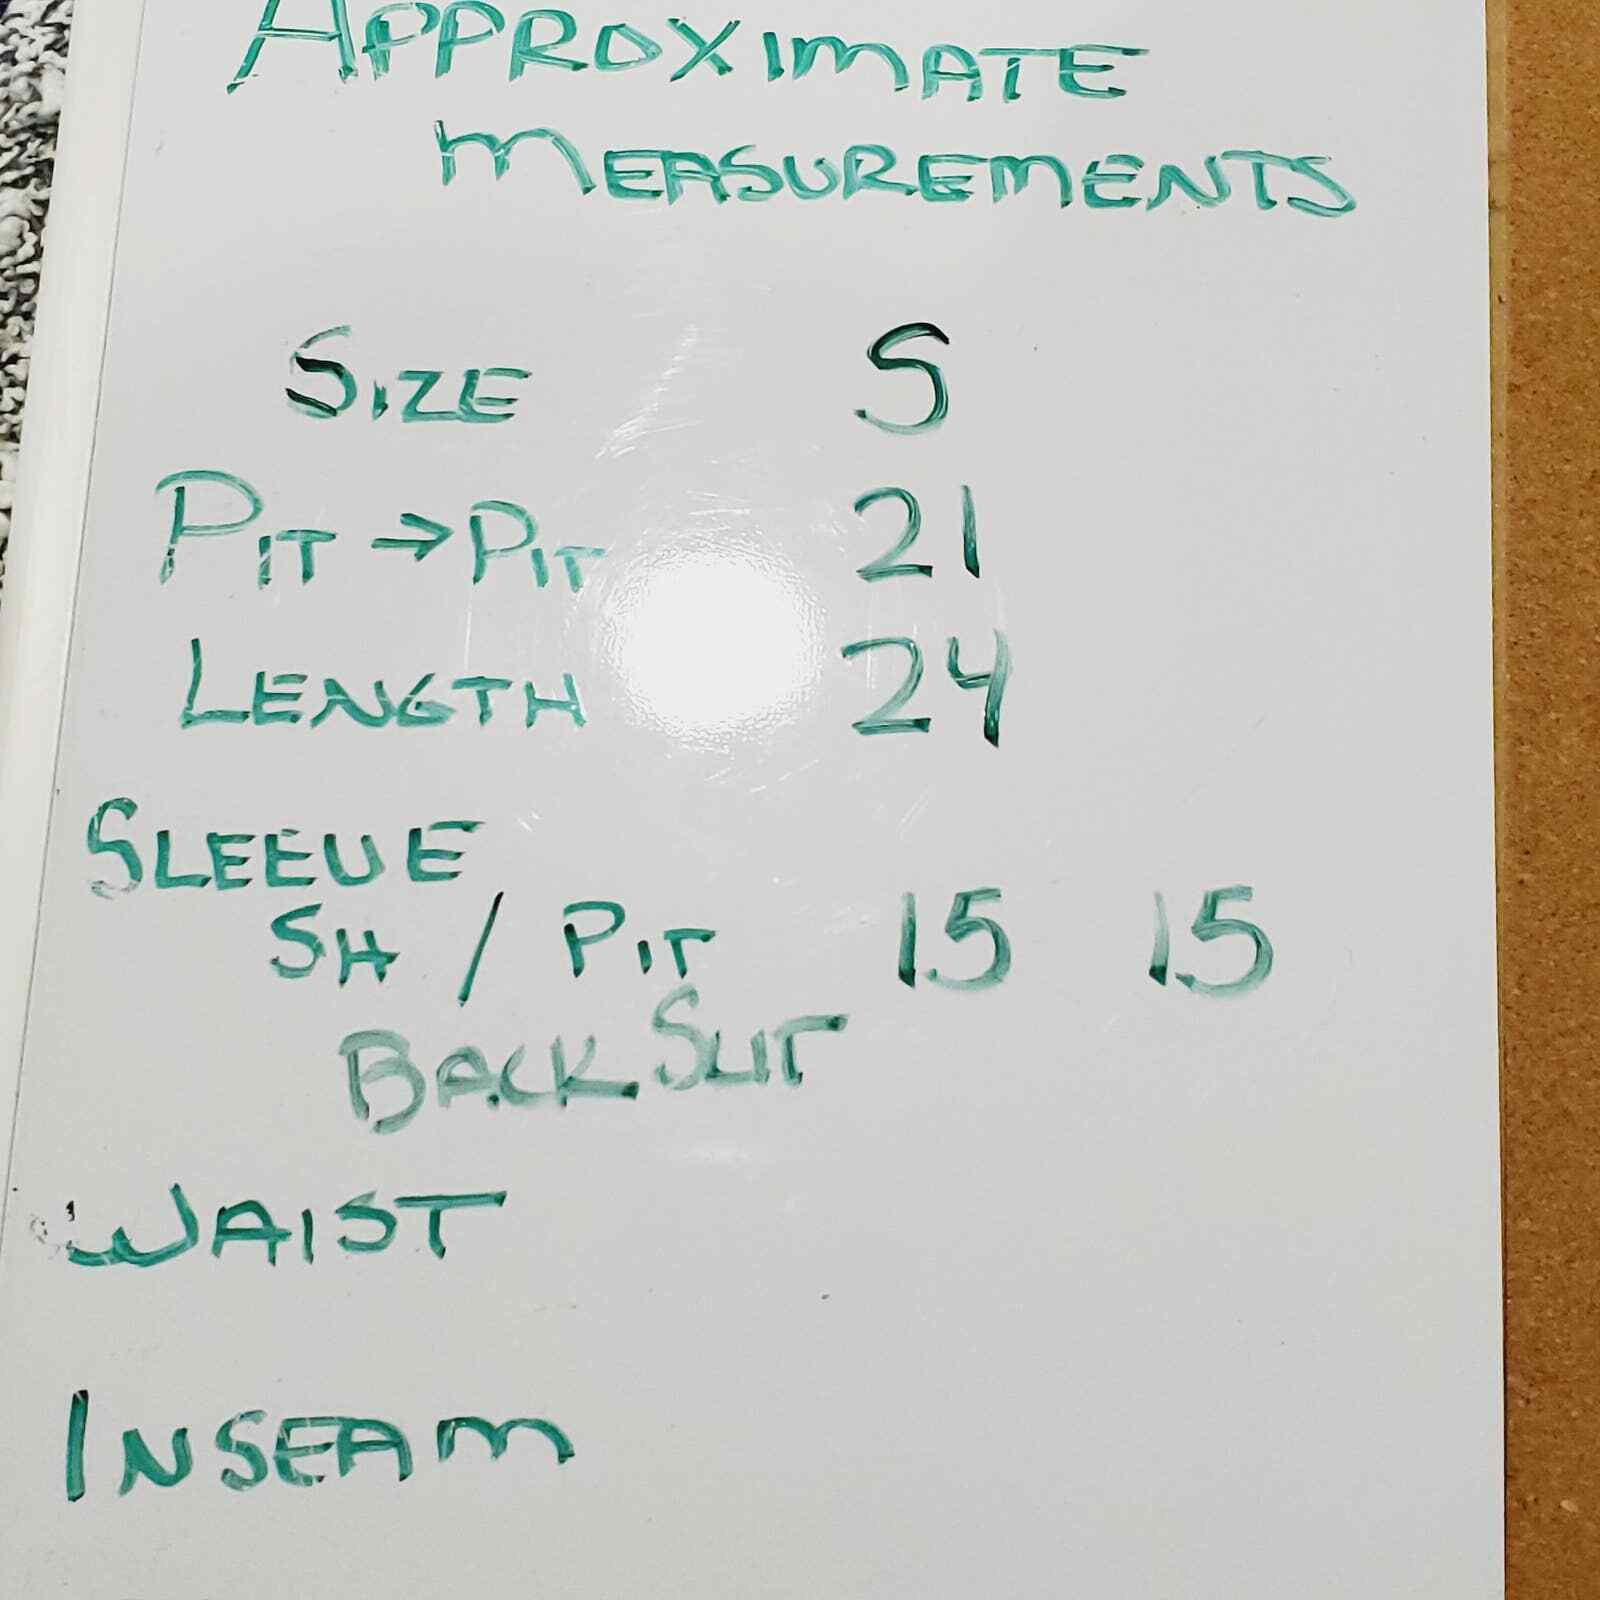 APPROXIMATE
MEASUREMENTS
SIZE S
PIT → PIT 21
LENGTH 24
SLEEVE
SH / PIT 15 15
BACK SLIT
WAIST
INSEAM